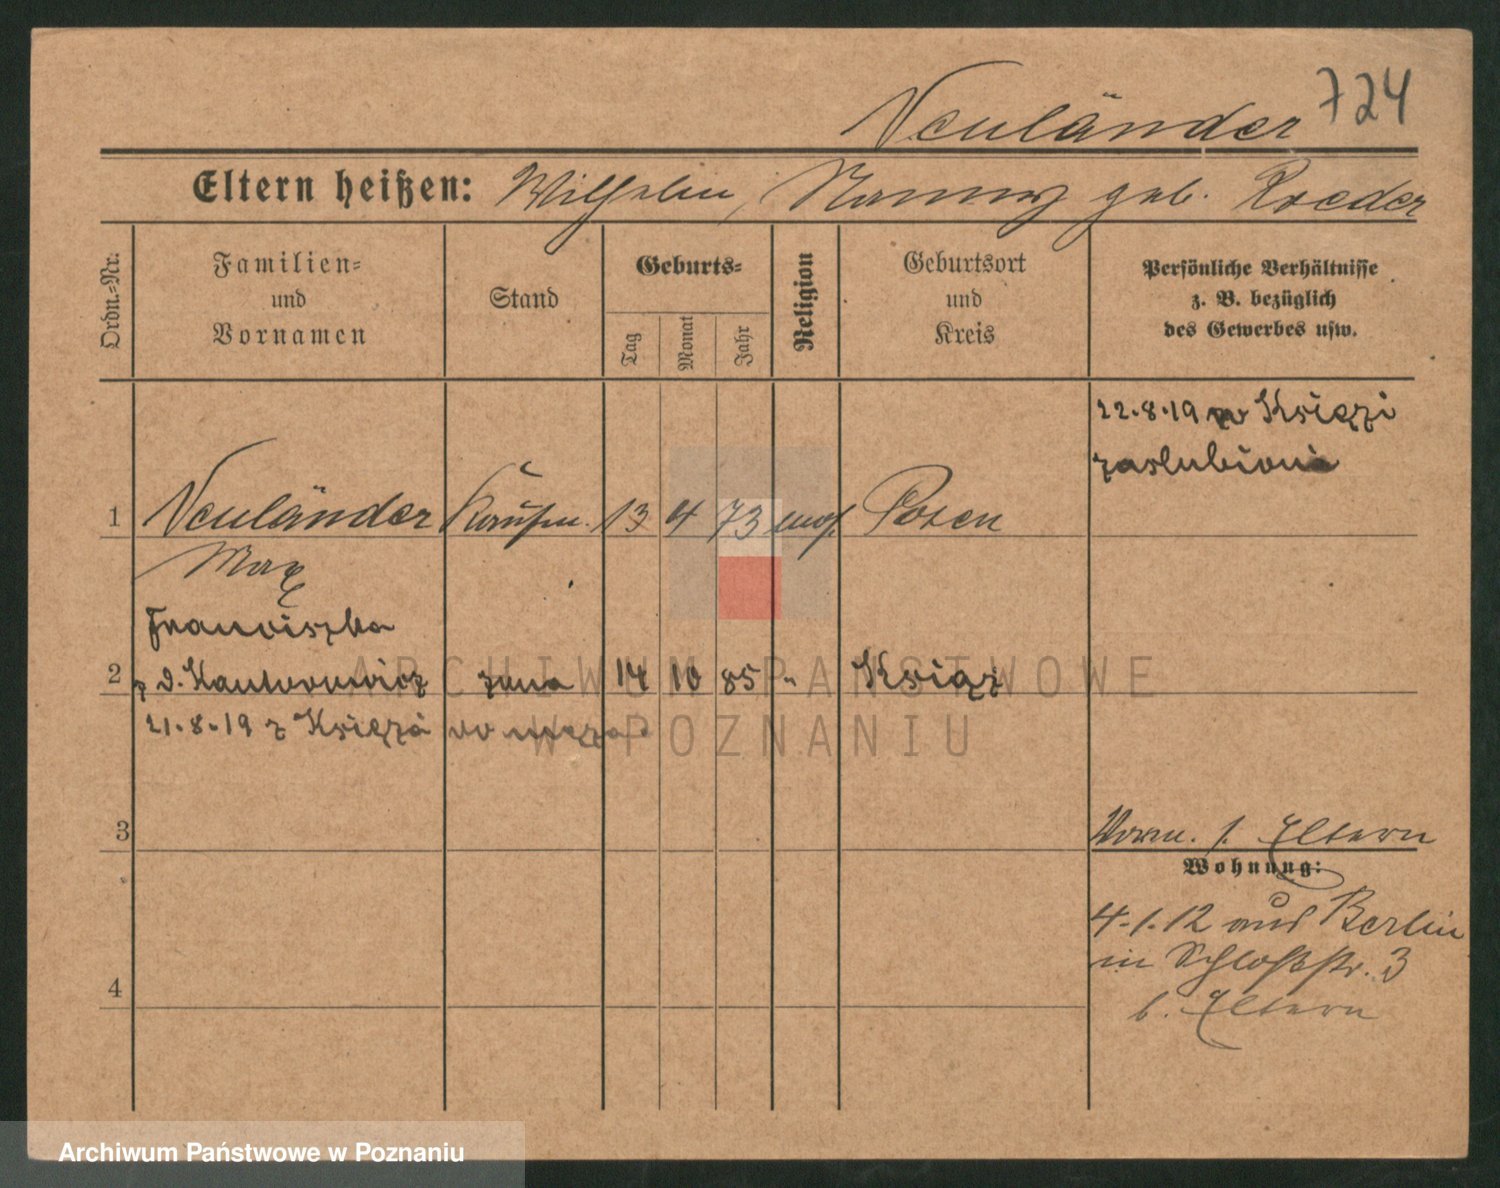 Neuländer 724
Eltern heißen: Wilhelm, Nanny geb. Roeder
Ordn.-Nr.
Familien-
und
Vornamen
Stand
Geburts-
Tag
Monat
Jahr
Religion
Geburtsort
und
Kreis
Persönliche Verhältnisse
z. B. bezüglich
des Gewerbes usw.
22.8.19 w Książi
zaslubieni
1 Neuländer Kaufm. 13 4 73 mos. Posen
Max
Franciszka
2 z d. Kantorowicz żona 14 10 85 " Książ
21.8.19 z Książa do męża
3
Vorm. s. Eltern
Wohnung:
4.1.12 aus Berlin
in Schloßstr. 3
4
b. Eltern
ARCHIWUM PAŃSTWOWE
W POZNANIU
Archiwum Państwowe w Poznaniu